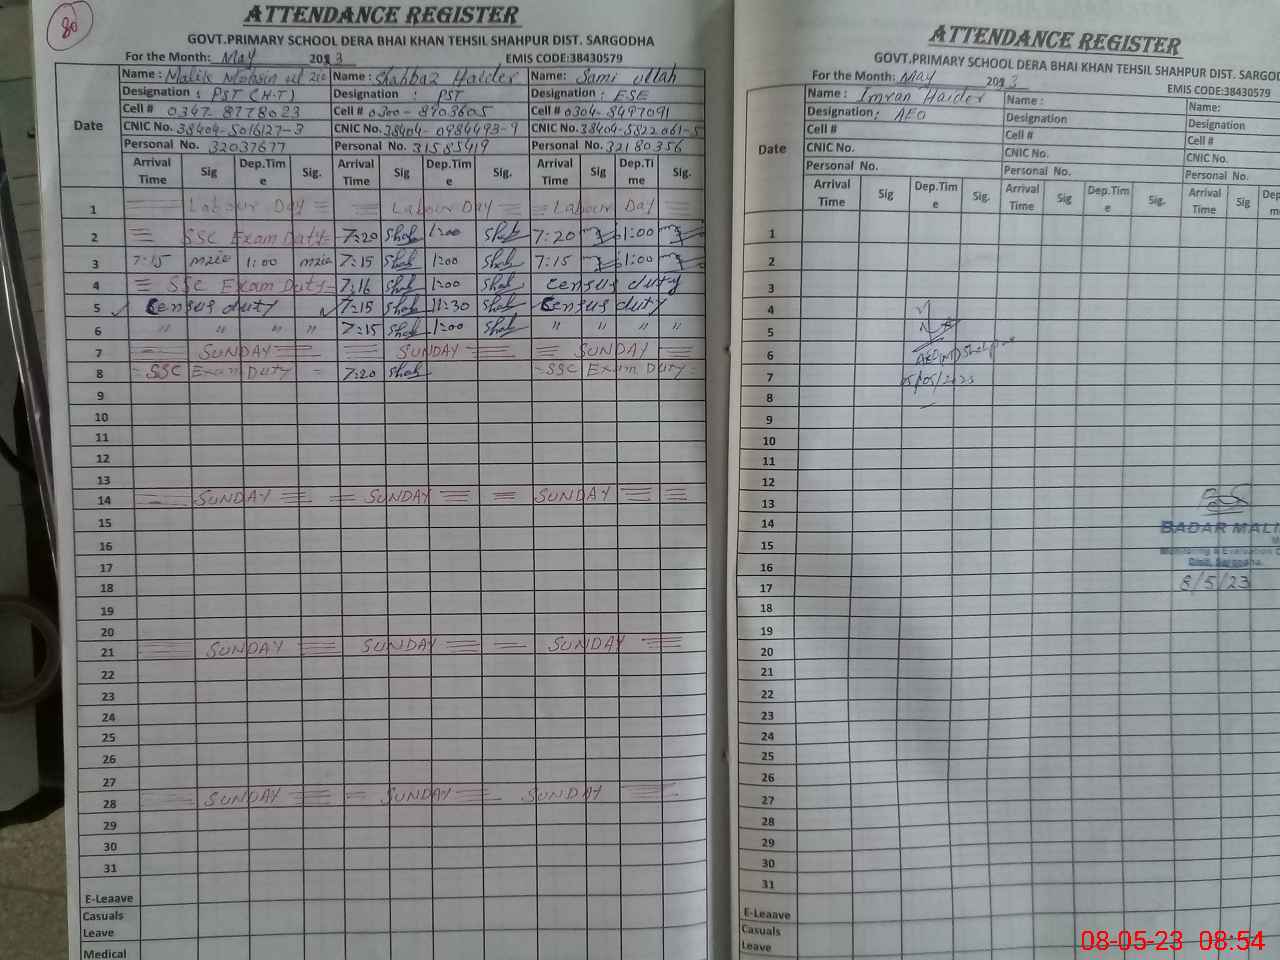 80
ATTENDANCE REGISTER
GOVT.PRIMARY SCHOOL DERA BHAI KHAN TEHSIL SHAHPUR DIST. SARGODHA
For the Month: May 2023 EMIS CODE:38430579
Date
Name : Malik Mohsin ul Name : Shahbaz Haider Name: Sami ullah
Designation : PST (H.T) Designation : PST Designation : ESE
Cell # 0347-8778023 Cell # 0300-8703605 Cell # 0304-8497091
CNIC No. 38404-5016127-3 CNIC No. 38404-0984493-9 CNIC No. 38404-5822061-5
Personal No. 32037677 Personal No. 31585419 Personal No. 32180356
Arrival Time Sig Dep.Time Sig. Arrival Time Sig Dep.Time Sig. Arrival Time Sig Dep.Time Sig.
1 Labour Day Labour Day Labour Day
2 SSC Exam Duty 7:20 Shah 1:00 Shah 7:20 1:00
3 7:15 1:00 7:15 Shah 1:00 Shah 7:15 1:00
4 SSC Exam Duty 7:16 Shah 1:00 Shah Census duty
5 Census duty 7:15 Shah 11:30 Shah Census duty
6 " " " " 7:15 Shah 1:00 Shah " " " "
7 SUNDAY SUNDAY SUNDAY
8 SSC Exam Duty 7:20 Shah SSC Exam Duty
9
10
11
12
13
14 SUNDAY SUNDAY SUNDAY
15
16
17
18
19
20
21 SUNDAY SUNDAY SUNDAY
22
23
24
25
26
27
28 SUNDAY SUNDAY SUNDAY
29
30
31
E-Leaave
Casuals
Leave
Medical
ATTENDANCE REGISTER
GOVT.PRIMARY SCHOOL DERA BHAI KHAN TEHSIL SHAHPUR DIST. SARGOD
For the Month: May 2023 EMIS CODE:38430579
Date
Name : Imran Haider Name : Name:
Designation : AEO Designation Designation
Cell # Cell # Cell #
CNIC No. CNIC No. CNIC No.
Personal No. Personal No. Personal No.
Arrival Time Sig Dep.Time Sig. Arrival Time Sig Dep.Time Sig. Arrival Time Sig Dep
1
2
3
4
5
6
7
05/05/2023
8
9
10
11
12
13
14
BADAR MALI
15
Monitoring & Evaluation
16
Distt. Sargodha.
17
8/5/23
18
19
20
21
22
23
24
25
26
27
28
29
30
31
E-Leaave
Casuals
Leave
08-05-23 08:54